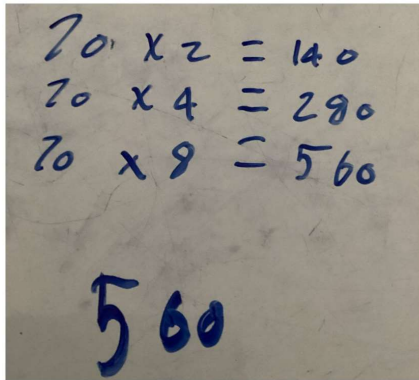 70 x 2 = 140
70 x 4 = 280
70 x 8 = 560
560